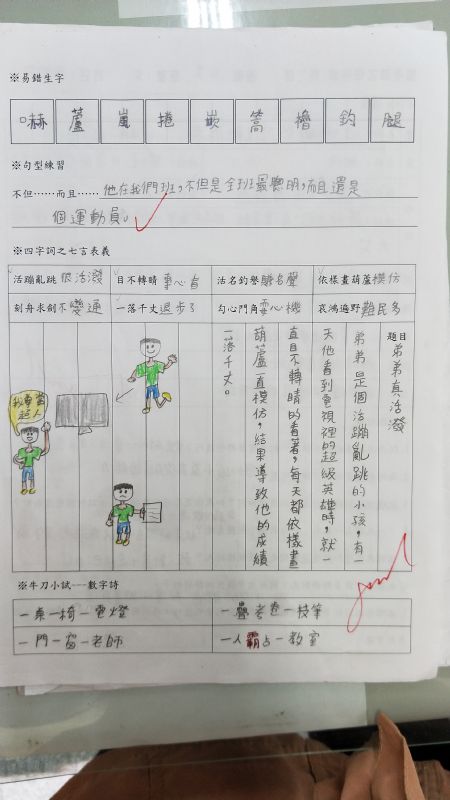 ※易錯生字
嚇 蘆 嵐 捲 嵌 篙 櫓 釣 腿
※句型練習
不但……而且……他在我們班，不但是全班最聰明，而且還是
個運動員。
※四字詞之七言表義
活蹦亂跳很活潑 目不轉睛專心看 沽名釣譽賺名聲 依樣畫葫蘆模仿
刻舟求劍不變通 一落千丈退步了 勾心鬥角耍心機 哀鴻遍野難民多
題目 弟弟真活潑
弟弟是個活蹦亂跳的小孩，有一
天他看到電視裡的超級英雄時，就一
直目不轉睛的看著，每天都依樣畫
葫蘆一直模仿，結果導致他的成績
一落千丈。
我要當
超人
※牛刀小試---數字詩
一桌一椅一電燈 一疊考卷一枝筆
一門一窗一老師 一人霸占一教室